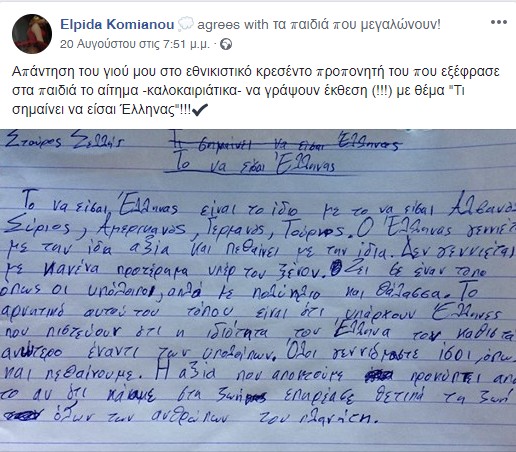 Elpida Komianou 💭 agrees with τα παιδιά που μεγαλώνουν!
20 Αυγούστου στις 7:51 μ.μ.
Απάντηση του γιού μου στο εθνικιστικό κρεσέντο προπονητή του που εξέφρασε
στα παιδιά το αίτημα -καλοκαιριάτικα- να γράψουν έκθεση (!!!) με θέμα "Τι
σημαίνει να είσαι Έλληνας"!!!✔
Σταύρος
Τι σημαίνει να είσαι Έλληνας
Το να είσαι Έλληνας
Το να είσαι Έλληνας είναι το ίδιο με το να είσαι Αλβανός
Σύριος, Αμερικανός, Γερμανός, Τούρκος. Ο Έλληνας γεννιέτ
με την ίδια αξία και πεθαίνει με την ίδια. Δεν γεννιέται
με κανένα προτέρημα υπέρ του ξένου. Ζει σε έναν τόπο
όπως οι υπόλοιποι, απλά με πολύ ήλιο και θάλασσα. Το
αρνητικό αυτού του τόπου είναι ότι υπάρχουν Έλληνες
που πιστεύουν ότι η ιδιότητα του Έλληνα τον καθιστά
ανώτερο έναντι των υπολοίπων. Όλοι γεννιόμαστε ίσοι, όπω
και πεθαίνουμε. Η αξία που αποκτούμε προκύπτει απο
το αν ότι κάναμε στη ζωή μας επηρέασε θετικά τη ζωή
όλων των ανθρώπων του πλανήτη.